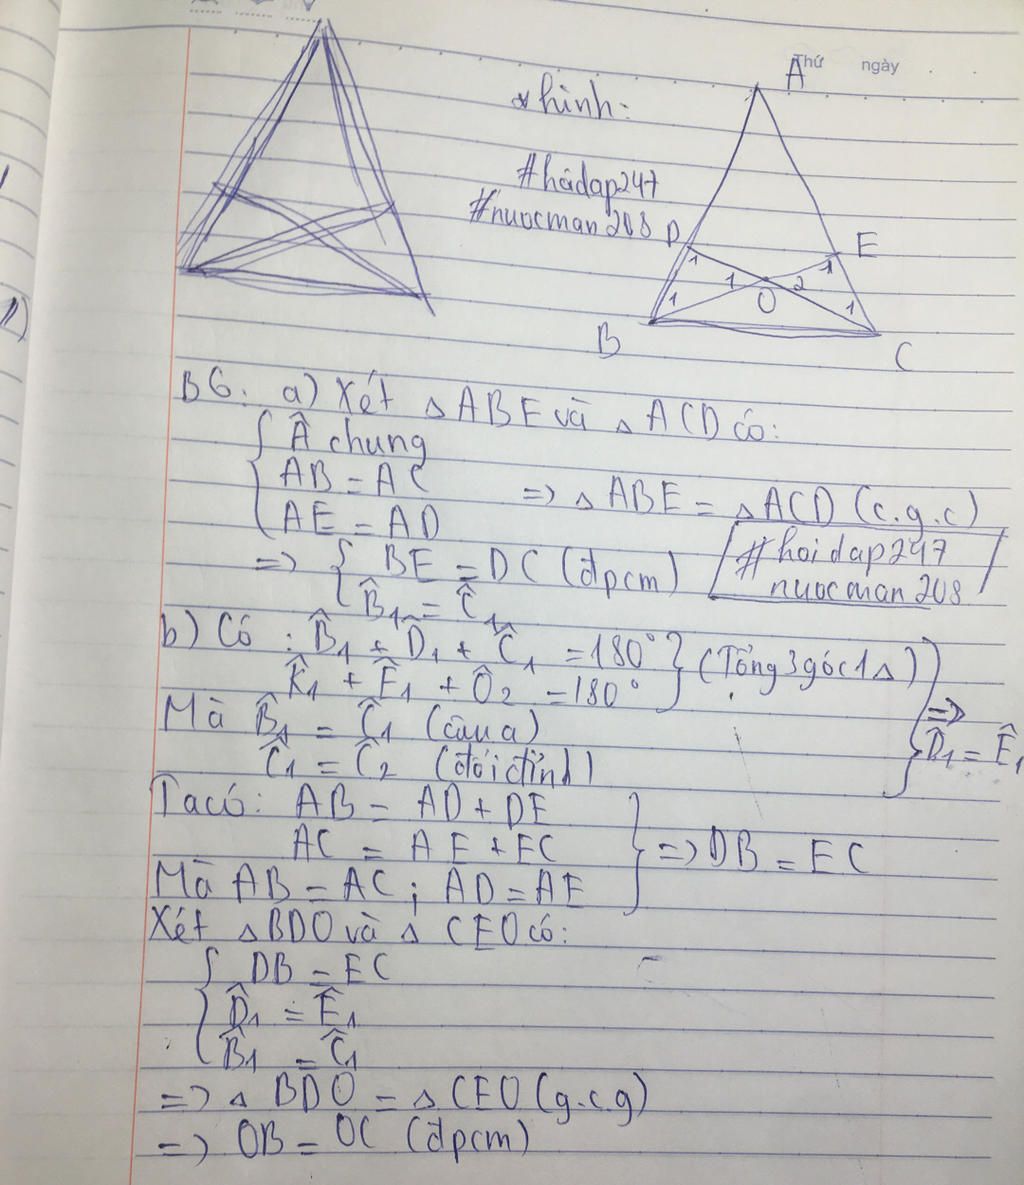 Thứ ngày
* hình:
#hoidap247
#nuocman208
A
D
E
1
1
1
2
1
1
O
B
C
B6. a) Xét △ABE và △ACD có:
Â chung
AB = AC
AE = AD
=> △ABE = △ACD (c.g.c)
=> BE = DC (đpcm)
B̂1 = Ĉ1
#hoidap247
nuocman208
b) Có: B̂1 + D̂1 + Ĉ1 = 180°
K̂1 + Ê1 + Ô2 = 180°
(Tổng 3 góc 1 △)
Mà B̂1 = Ĉ1 (câu a)
Ĉ1 = Ĉ2 (đối đỉnh)
=> D̂1 = Ê1
Ta có: AB = AD + DE
AC = AE + EC
Mà AB = AC; AD = AE
=> DB = EC
Xét △BDO và △CEO có:
DB = EC
D̂1 = Ê1
B̂1 = Ĉ1
=> △BDO = △CEO (g.c.g)
=> OB = OC (đpcm)